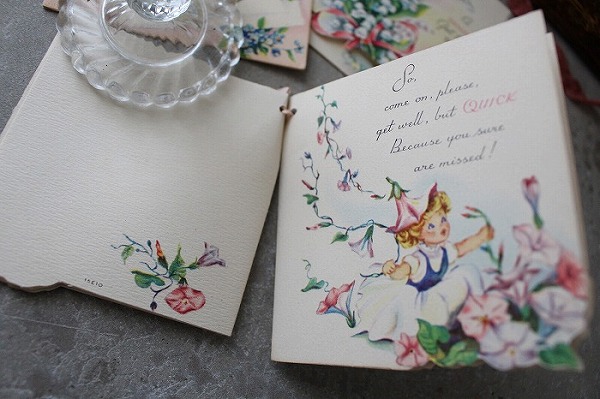 So,
come on, please,
get well, but QUICK
Because you sure
are missed!